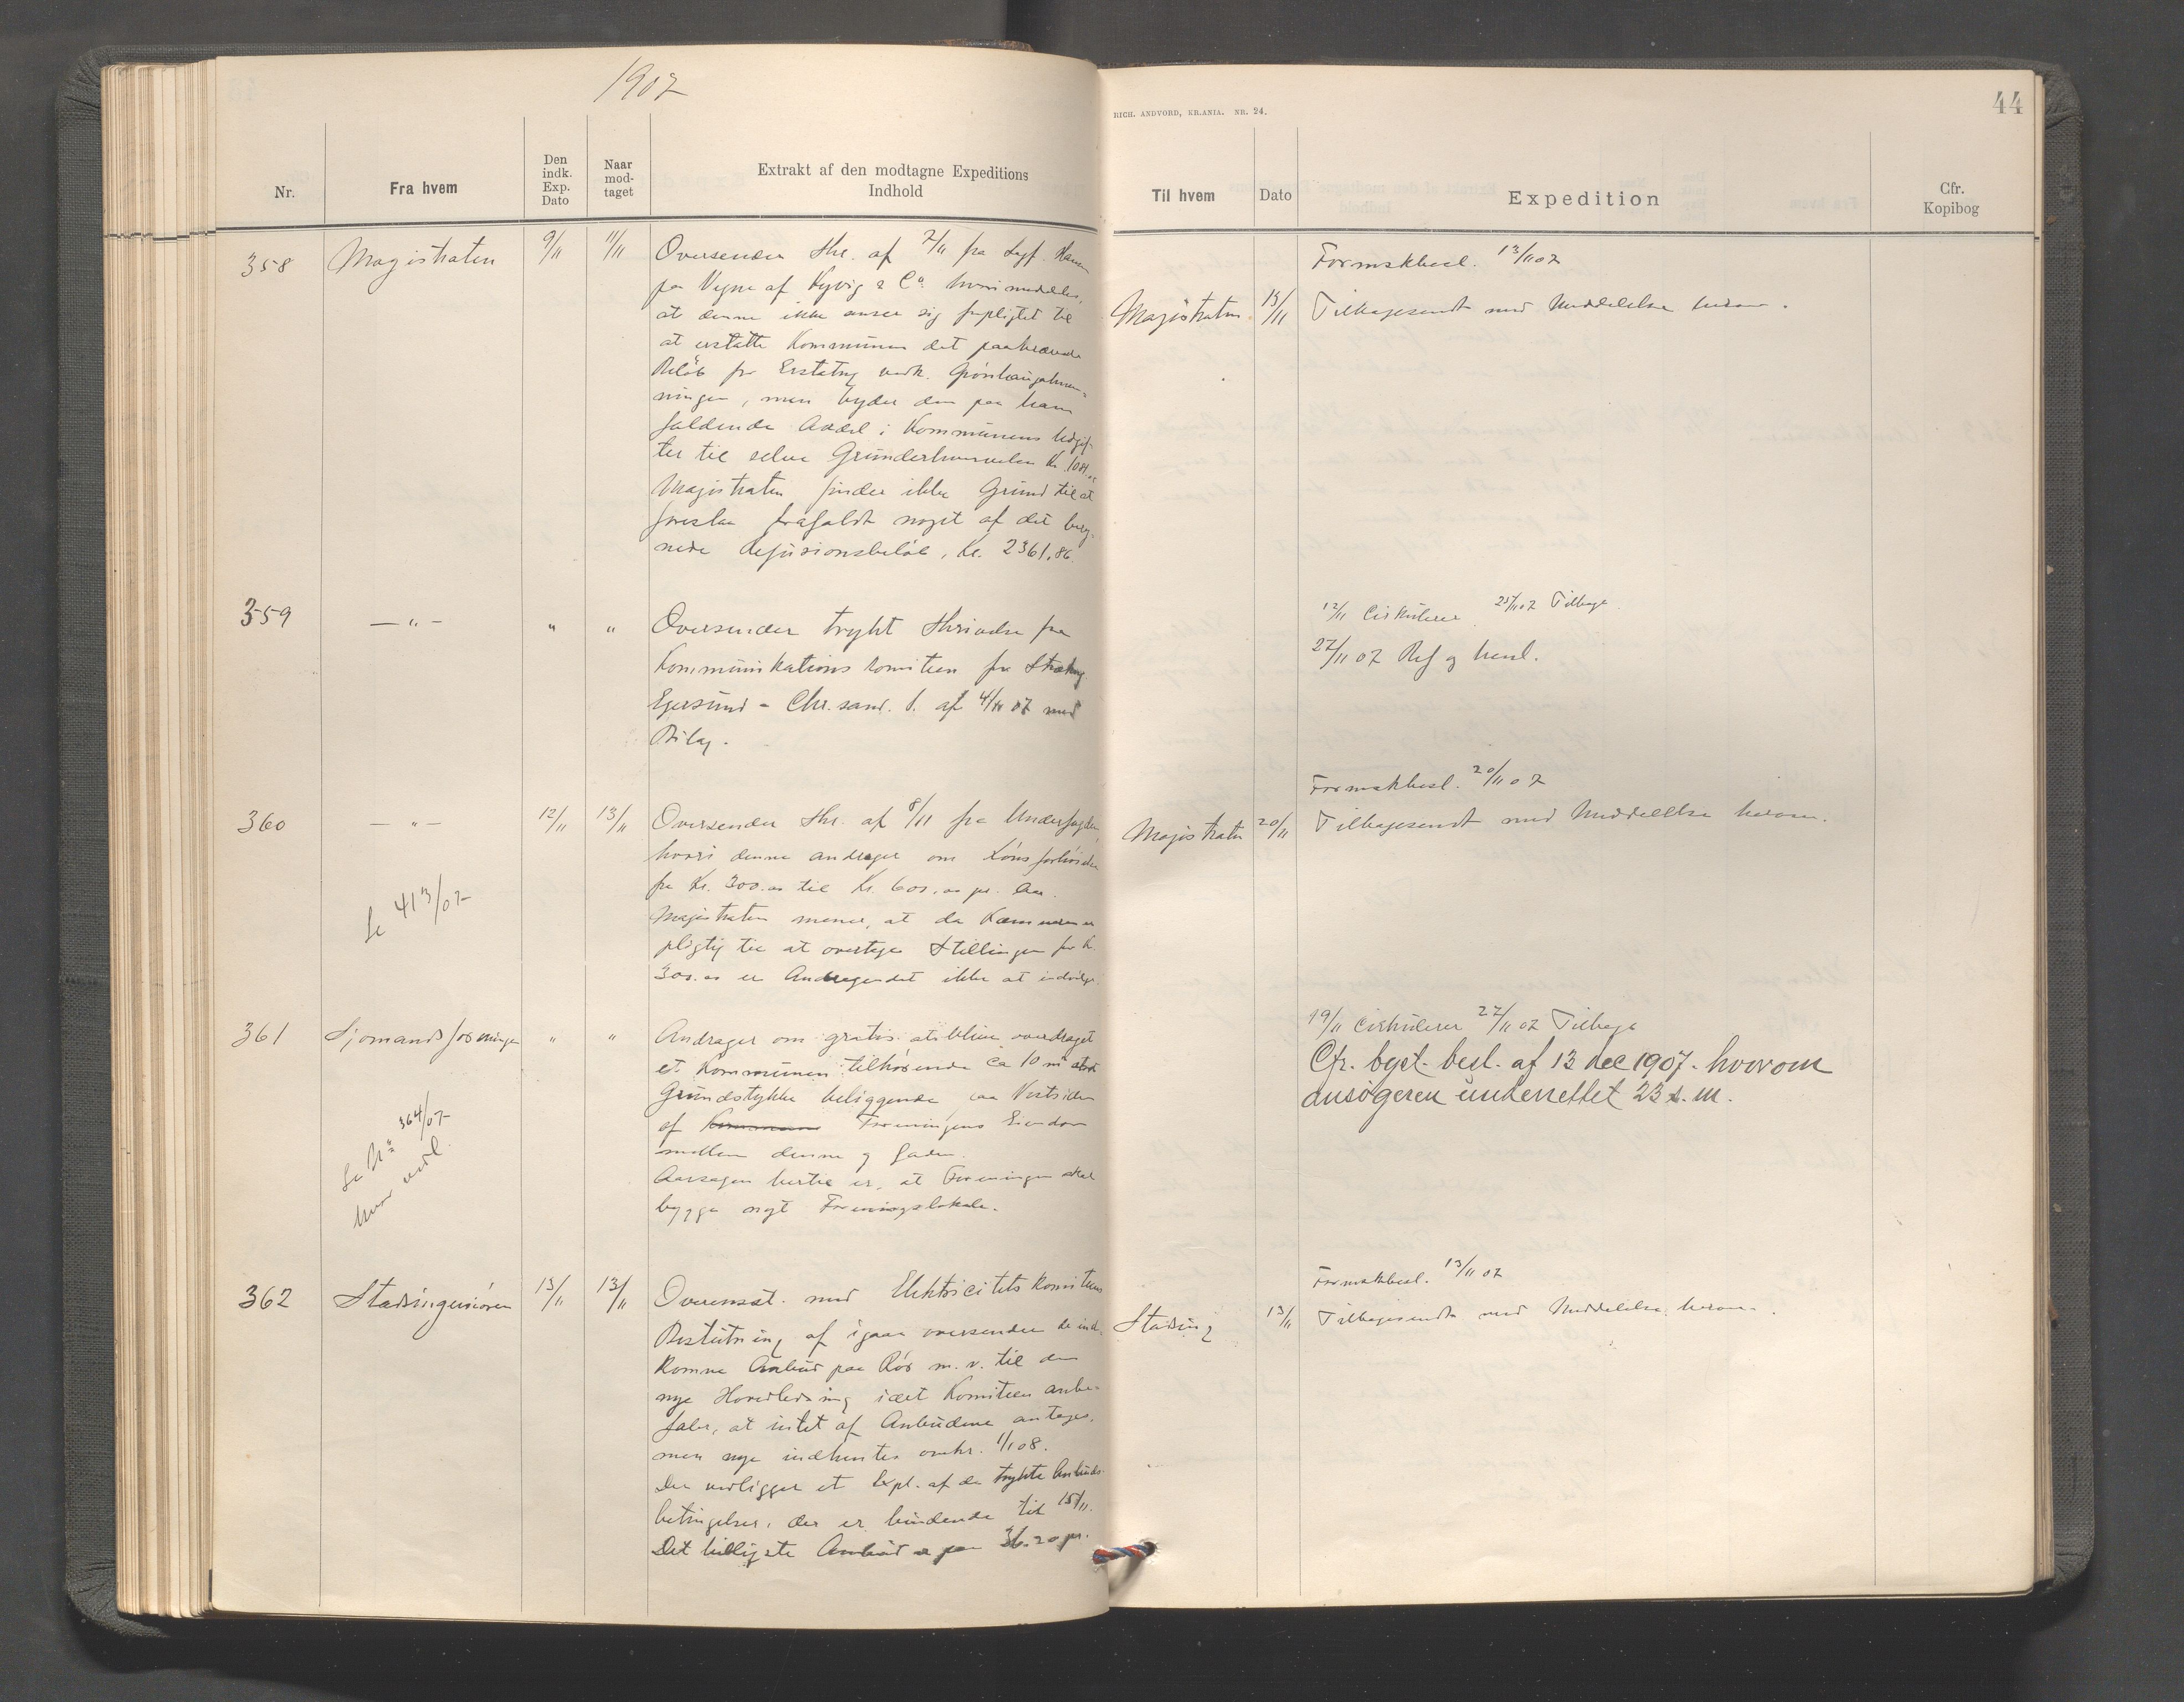 1907
RICH. ANDVORD, KR.ANIA. NR. 24.
44
Nr.
Fra hvem
Den indk. Exp. Dato
Naar mod-taget
Extrakt af den modtagne Expeditions Indhold
Til hvem
Dato
Expedition
Cfr. Kopibog
358 Magistraten 9/11 11/11 Oversender Skr. af 7/11 fra Sagf. Hansen
paa Vegne af Kyvig & Co. hvori meddeles,
at denne ikke anser sig forpligtet til
at erstatte Kommunen det paakrævede
Beløb for Erstatng vedk.
ningen, men byder den paa ham
faldende Andel i Kommunens Udgif-
ter til selve Grunderhvervelsen Kr. 104
Magistraten finder ikke Grund til at
foreslaa frafaldt noget af det bereg-
nede Refusionsbeløb, Kr. 2361.86.
Formskbesl. 13/11 07
Magistraten 13/11 Tilbagesendt med Meddelelse herom.
359 — " — " " Oversender trykt Skrivelse fra
Kommunikationskomiteen for Strækng
Egersund - Chr.sand. S. af 4/11 07 med
Bilag.
12/11 Cirkulerer 25/11 07 Tilbage
27/11 07 Ref og henl.
360 — " — 12/11 13/11 Oversender Skr. af 8/11 fra Underfogden
hvori denne andrager om Lønsforhøielse
fra Kr. 300.00 til Kr. 600.00 pr. Aar.
Magistraten mener, at da Kæmneren er
pligtig til at overtage Stillingen for Kr.
300.00 er Andragendet ikke at indvilge.
Se 413/07
Formskbesl. 20/11 07
Magistraten 20/11 Tilbagesendt med Meddelelse herom.
361 Sjomandsforeningen " " Andrager om gratis at blive overdraget
et Kommunen tilhørende ca 10 m² stort
Grundstykke beliggende paa Vestsiden
af Kommunens Foreningens Eiendom
mellem denne og Gaden.
Aarsagen hertil er, at Foreningen skal
bygge nyt Foreningslokale.
Se No 364/07
hvor vedl.
19/11 Cirkulerer 27/11 07 Tilbage
Cfr. byst. besl. af 13 dec 1907. hvorom
ansøgeren underrettet 23 s. m.
362 Stadsingeniøren 13/11 13/11 Overensst. med Elektricitetskomiteens
Beslutning af igaar oversendes de ind-
komne Anbud paa Rør m.v. til den
nye Hovedledning idet Komiteen anbe-
faler, at intet af Anbudene antages,
men nye indhentes omkr. 1/1 08.
Der vedligger et Expl. af de trykte Anbuds-
betingelser, der er bindende til 15/11.
Det billigste Anbud er paa 36.20 pr.
Formskbesl. 13/11 07
Stadsing 13/11 Tilbagesendt med Meddelelse herom.